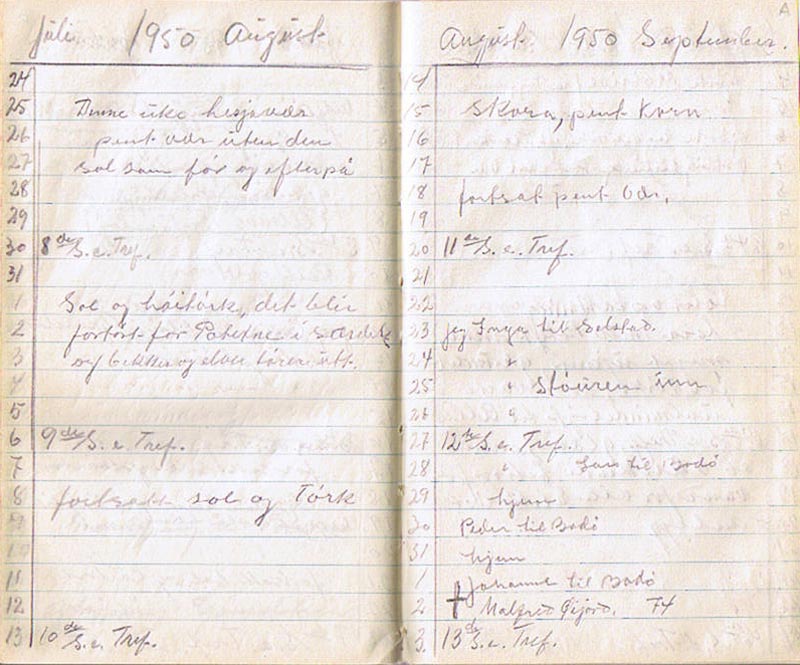 Juli 1950 August
24
25 Denne uko hesjavær
26 pent vær uten den
27 sol som før og efterpå
28
29
30 8de S. e. Tref.
31
1 Sol og höitörk, det blir
2 fortört for Potetne i
3 og bekker og elver törer ut.
4
5
6 9de S. e. Tref.
7
8 fortsatt sol og Törk
9
10
11
12
13 10de S. e. Tref.
August 1950 September.
14
15 Skora, pent Korn
16
17
18 fortsat pent Vær.
19
20 11te S. e. Tref.
21
22
23 jeg Inga til Selstad.
24 "
25 " inn
26 "
27 12te S. e. Tref.
28 " Lars til Bodö
29 hjem
30 Peder til Bodö
31 hjem
1 Johanne til Bodö
2 † Malfred Gjörd. 74
3. 13de S. e. Tref.